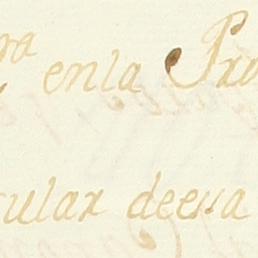 ra enla Pro
cular deesa